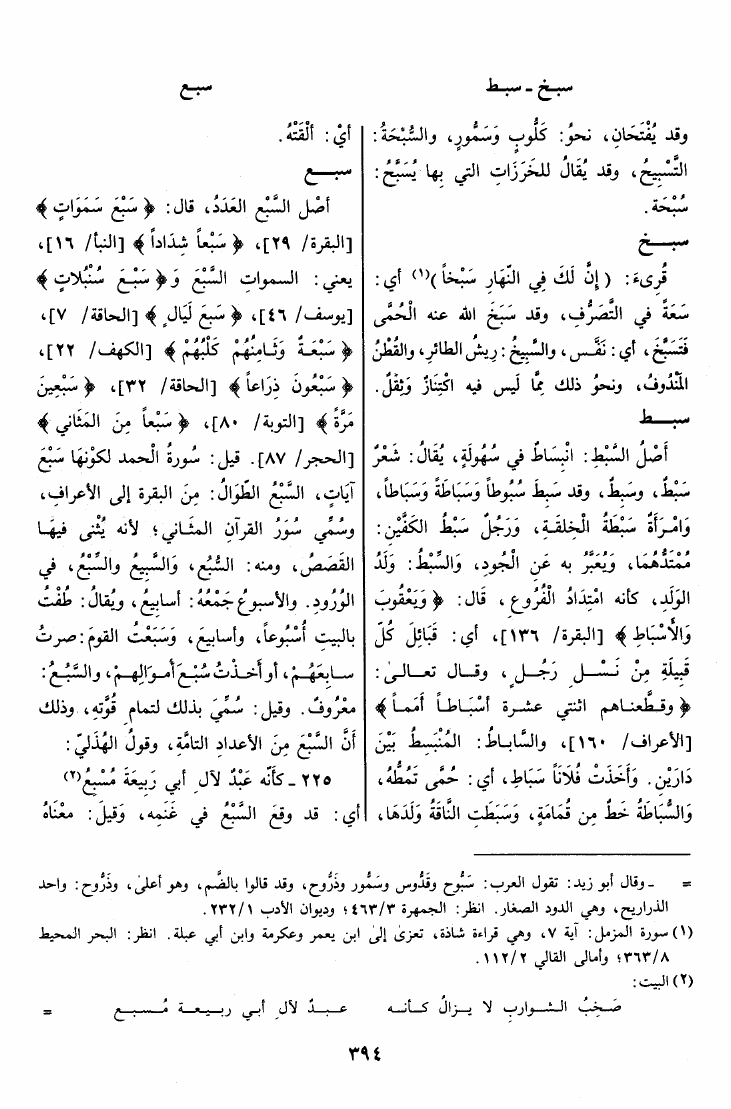 سبخ - سبط
سبع
وقد يُفْتَحَانِ، نحوُ: كَلُّوبٍ وَسَمُّورٍ، والسُّبْحَةُ:
التَّسْبِيحُ، وقد يُقَالُ للخَرَزَاتِ التي بِها يُسَبَّحُ:
سُبْحَة.
سبخ
قُرِىءَ: (إِنَّ لَكَ فِي النَّهَارِ سَبْخاً)(١) أي:
سَعَةً في التَّصَرُّفِ، وقد سَبَخَ الله عنه الْحُمَّى
فَتَسَبَّخَ، أي: نَفَّس، والسَّبِيخُ: رِيشُ الطائرِ، والقُطْنُ
المَنْدُوفُ، ونحوُ ذلك مِمَّا لَيس فيه اكْتِنَازٌ وَثِقَلٌ.
سبط
أَصْلُ السَّبْطِ: انْبِسَاطٌ في سُهُولَةٍ، يُقَالُ: شَعْرٌ
سَبْطٌ، وسَبِطٌ، وقد سَبِطَ سُبُوطاً وَسَبَاطَةً وَسَبَاطاً،
وَامْرَأَةٌ سَبْطَةُ الخلقة، وَرَجُلٌ سَبْطُ الكَفَّيْنِ:
مُمْتَدُّهُمَا، وَيُعَبَّرُ به عَنِ الْجُودِ، وَالسِّبْطُ: وَلَدُ
الوَلَدِ، كأنه امْتِدَادُ الْفُرُوعِ، قَال: ﴿وَيَعْقُوبَ
وَالأَسْبَاطِ﴾ [البقرة/ ١٣٦]، أي: قَبَائِلَ كُلُّ
قَبِيلَةٍ مِنْ نَسْلِ رَجُلٍ، وقال تعالىٰ:
﴿وقطَّعناهم اثنتي عشرة أسْبَاطاً أُمَماً﴾
[الأعراف/ ١٦٠]، والسَّابَاطُ: المُنْبَسِطُ بَيْنَ
دَارَيْنِ. وَأَخَذَتْ فُلَاناً سَبَاطِ، أي: حُمَّى تَمُطُّهُ،
وَالسُّبَاطَةُ خَطٌّ مِن قُمَامَةٍ، وَسَبَطَتِ النَّاقَةُ وَلَدَهَا،
أيْ: أَلْقَتْهُ.
سبع
أصْل السَّبْع العَدَدُ، قال: ﴿سَبْعَ سَمَوَاتٍ﴾
[البقرة/ ٢٩]، ﴿سَبْعاً شِدَاداً﴾ [النبأ/ ١٦]،
يعني: السموات السَّبْعَ وَ﴿سَبْعَ سُنْبُلَاتٍ﴾
[يوسف/ ٤٦]، ﴿سَبْعَ لَيَالٍ﴾ [الحاقة/ ٧]،
﴿سَبْعَةٌ وَثَامِنُهُمْ كَلْبُهُمْ﴾ [الكهف/ ٢٢]،
﴿سَبْعُونَ ذِرَاعاً﴾ [الحاقة/ ٣٢]، ﴿سَبْعِينَ
مَرَّةً﴾ [التوبة/ ٨٠]، ﴿سَبْعاً مِنَ المَثَاني﴾
[الحجر/ ٨٧]. قيل: سُورةُ الْحمد لكونها سَبْعَ
آيَاتٍ، السَّبْعُ الطِّوَالُ: مِنَ البقرة إلى الأعراف،
وسُمِّي سُوَرُ القرآنِ المثاني؛ لأنه يُثْنى فيها
القَصَصُ، ومنه: السُّبُع، وَالسَّبِيعُ والسِّبْعُ، في
الوُرُودِ. والأسبوعُ جَمْعُهُ: أسابيعُ، ويُقالُ: طُفْتُ
بالبيت أُسْبُوعاً، وأسابيعَ، وَسَبَعْتُ القومَ: صرتُ
سابِعَهُمْ، أو أخذتُ سُبُعَ أموالِهمْ، والسَّبُعُ:
معْرُوفٌ. وقيل: سُمِّيَ بذلك لتمامِ قُوَّتِهِ، وذلك
أنَّ السَّبْعَ مِنَ الأعدادِ التامَّةِ، وقولُ الهُذَليِّ:
٢٢٥ - كأنّه عَبْدٌ لآلِ أبي رَبِيعَةَ مُسْبَعُ(٢)
أي: قد وقَعَ السَّبْعُ في غَنَمِه، وَقيلَ: معْنَاهُ
= - وقال أبو زيد: تقول العرب: سَبُّوح وقَدُّوس وسَمُّور وذَرُّوح، وقد قالوا بالضَّم، وهو أعلىٰ، وذُرُّوح: واحد
الذراريح، وهي الدود الصغار. انظر: الجمهرة ٤٦٣/٣؛ وديوان الأدب ٢٣٢/١.
(١) سورة المزمل: آية ٧، وهي قراءة شاذة، تعزىٰ إلىٰ ابن يعمر وعكرمة وابن أبي عبلة. انظر: البحر المحيط
٣٦٣/٨؛ وأمالي القالي ١١٢/٢.
(٢) البيت:
صَخِبُ الشواربِ لا يزالُ كأنه عبدٌ لآلِ أبي ربيعة مُسبع =
٣٩٤